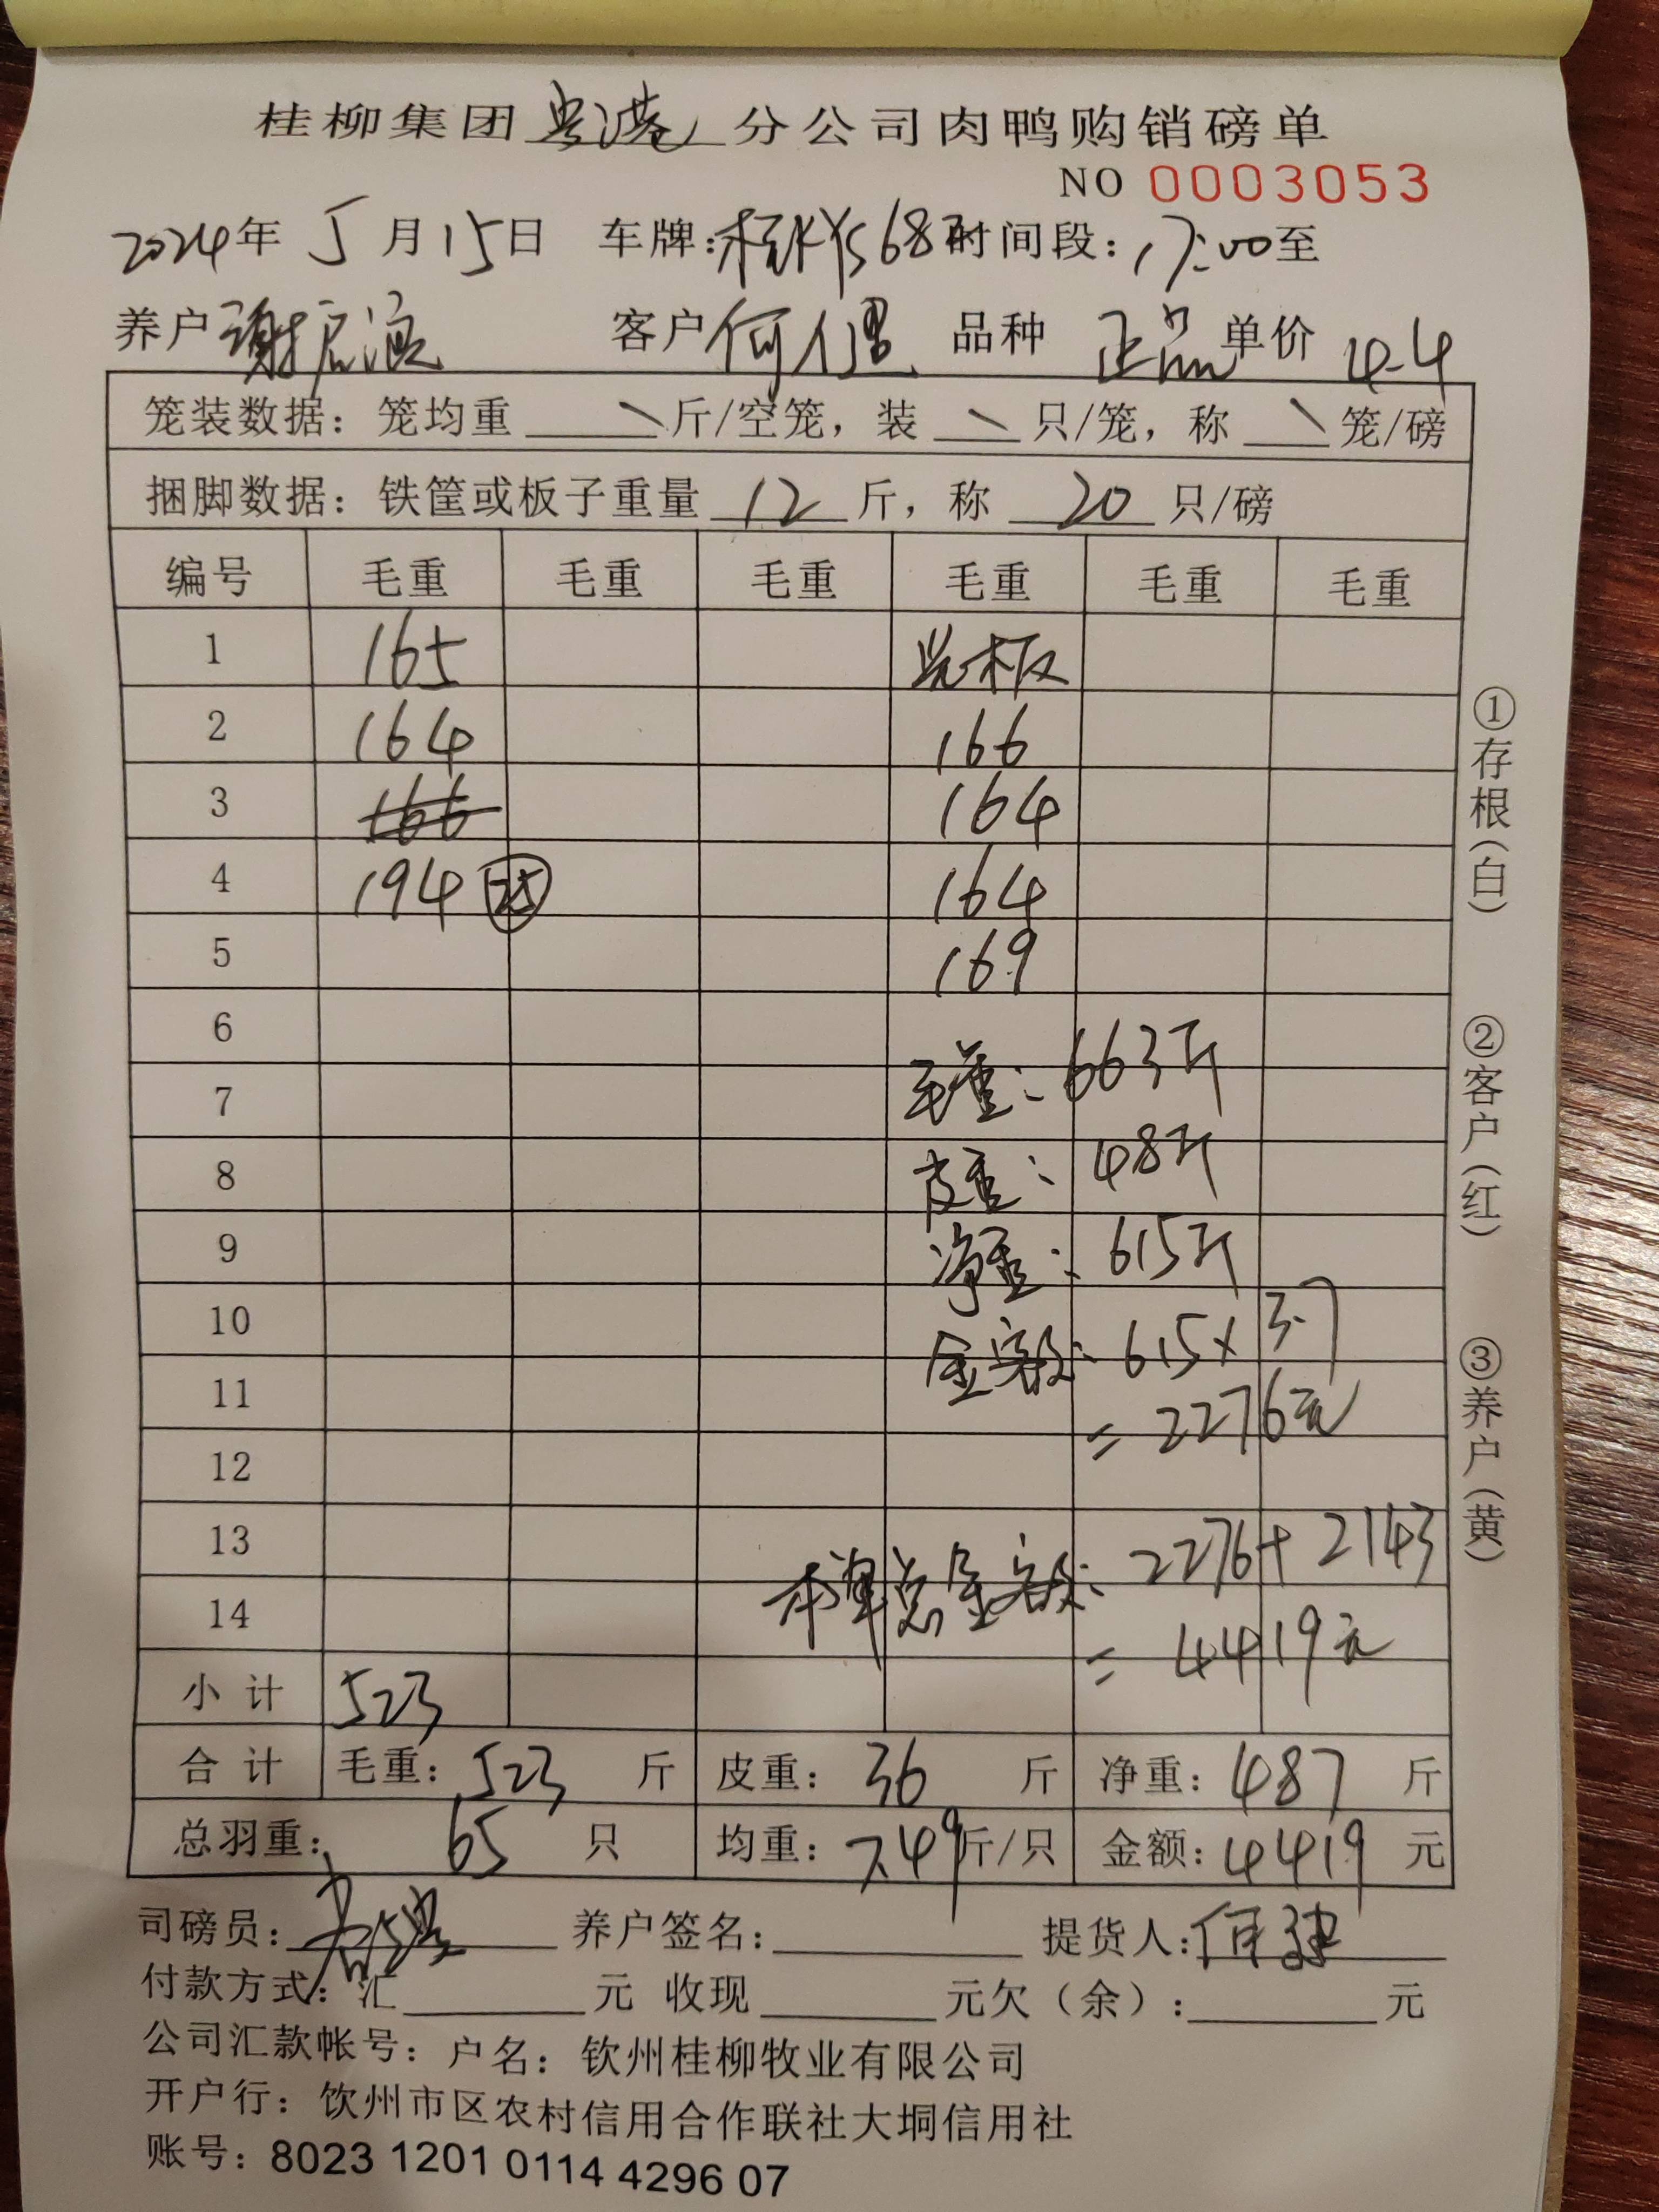 桂柳集团贵港分公司肉鸭购销磅单
NO 0003053
2024年 5月15日 车牌: 68 时间段: 17:00至
养户 谢 客户 何 品种 正品 单价 4.4
笼装数据: 笼均重 \ 斤/空笼, 装 \ 只/笼, 称 \ 笼/磅
捆脚数据: 铁筐或板子重量 12 斤, 称 20 只/磅
编号 毛重 毛重 毛重 毛重 毛重 毛重
1 165 光板
2 164 166
3 166 164
4 194 25 164
5 169
6
7 毛重: 663斤
8 皮重: 48斤
9 净重: 615斤
10 金额: 615×3.7
11 = 2276元
12
13 本单总金额: 2276+2143
14 = 4419元
小计 523
合计 毛重: 523 斤 皮重: 36 斤 净重: 487 斤
总羽重: 65 只 均重: 7.49 斤/只 金额: 4419 元
司磅员: 养户签名: 提货人: 何建
付款方式: 汇 元 收现 元欠(余): 元
公司汇款帐号: 户名: 钦州桂柳牧业有限公司
开户行: 钦州市区农村信用合作联社大垌信用社
账号: 8023 1201 0114 4296 07
①存根(白) ②客户(红) ③养户(黄)